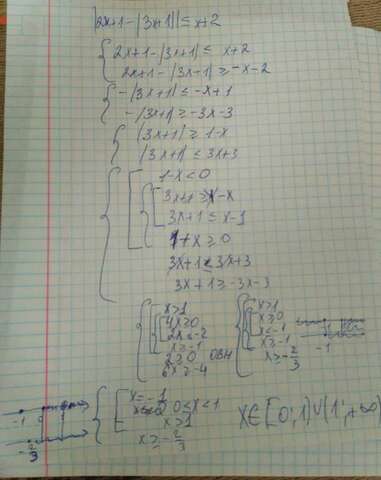 |2x+1-|3x+1||≤x+2
2x+1-|3x+1|≤ x+2
2x+1-|3x-1|≥-x-2
-|3x+1|≤-x+1
-|3x+1|≥-3x-3
|3x+1|≥1-x
|3x+1|≤3x+3
1-x<0
3x+1≥1-x
3x+1≤x-1
1-x≥0
3x+1≤3x+3
3x+1≥-3x-3
x>1
4x≥0
2x≤-2
x≥-1
2≥0 ОВН
6x≥-4
x>1
x≥0
x≤-1
x≥-1
x≥-2/3
-1
-1 0 1
-2/3
x=-1
0≤x<1
x>1
x≥-2/3
x∈[0;1)∪(1;+∞)